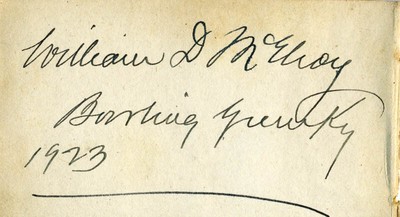 William D McElroy
Bowling Green Ky
1923